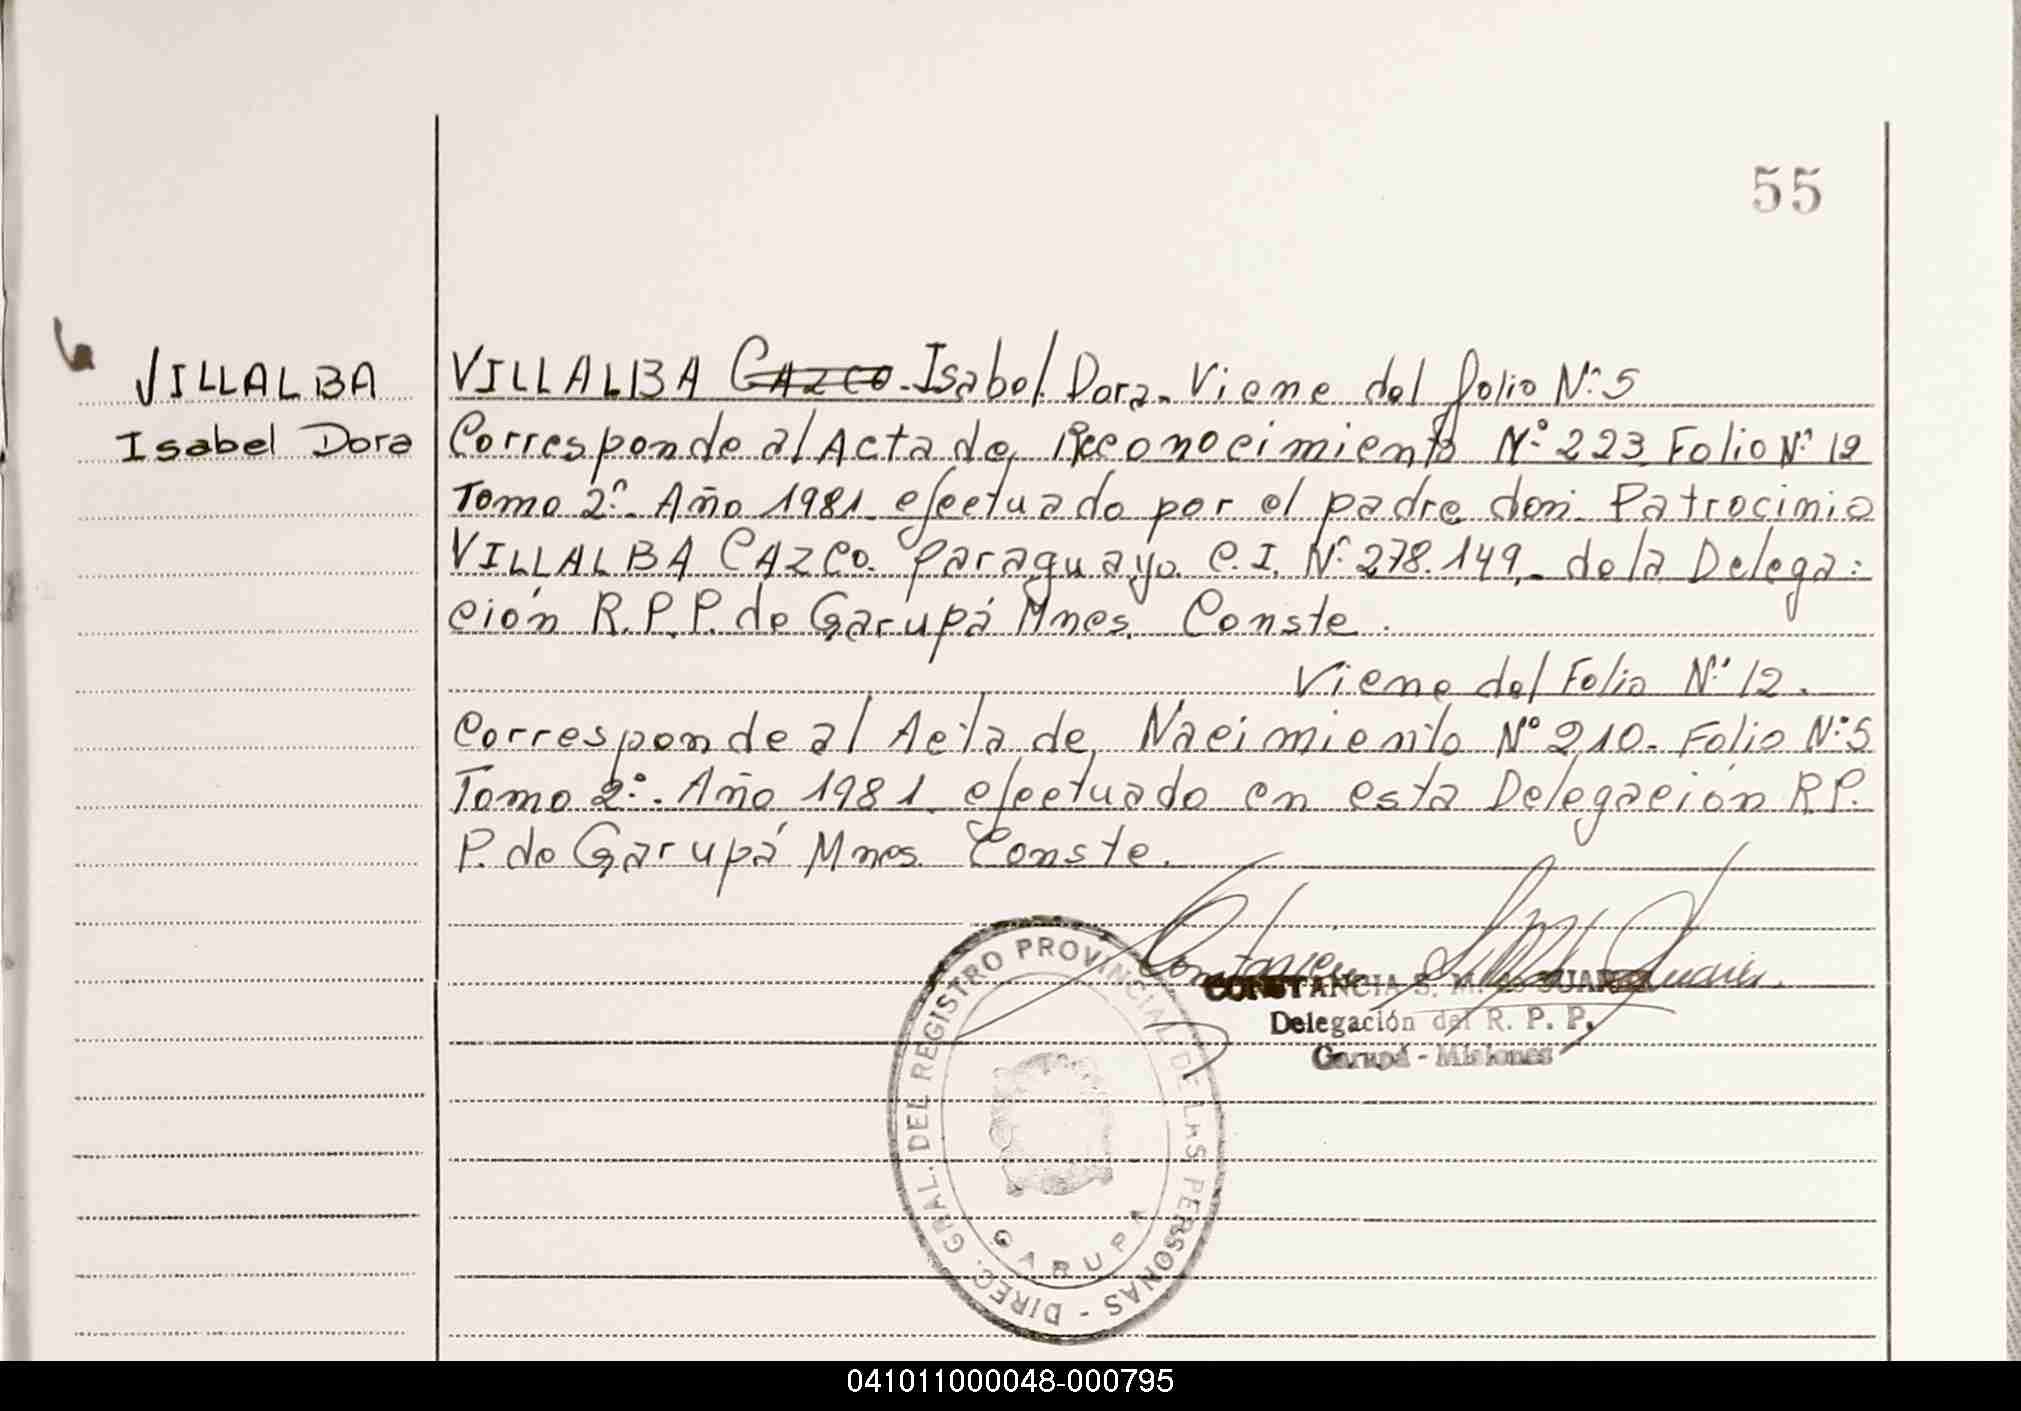 55
VILLALBA
Isabel Dora
VILLALBA CAZCO. Isabel Dora. Viene del folio Nº 5
Corresponde al Acta de Reconocimiento Nº 223 Folio Nº 12
Tomo 2º. Año 1981 efectuado por el padre don Patrocinio
VILLALBA CAZCO. Paraguayo. C.I. Nº 278.149.- de la Delega-
ción R.P.P. de Garupá Mnes. Conste.
Viene del Folio Nº 12.
Corresponde al Acta de Nacimiento Nº 210. Folio Nº 5
Tomo 2º. Año 1981 efectuado en esta Delegación R.P.
P. de Garupá Mnes. Conste.
CONSTANCIA S. M. SUAREZ
Delegación del R. P. P.
Garupá - Misiones
DIREC. GRAL. DEL REGISTRO PROVINCIAL DE LAS PERSONAS -
GARUPA
041011000048-000795